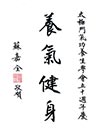 太極門氣功養生學會五十週年慶
養氣健身
蘇嘉全 敬賀